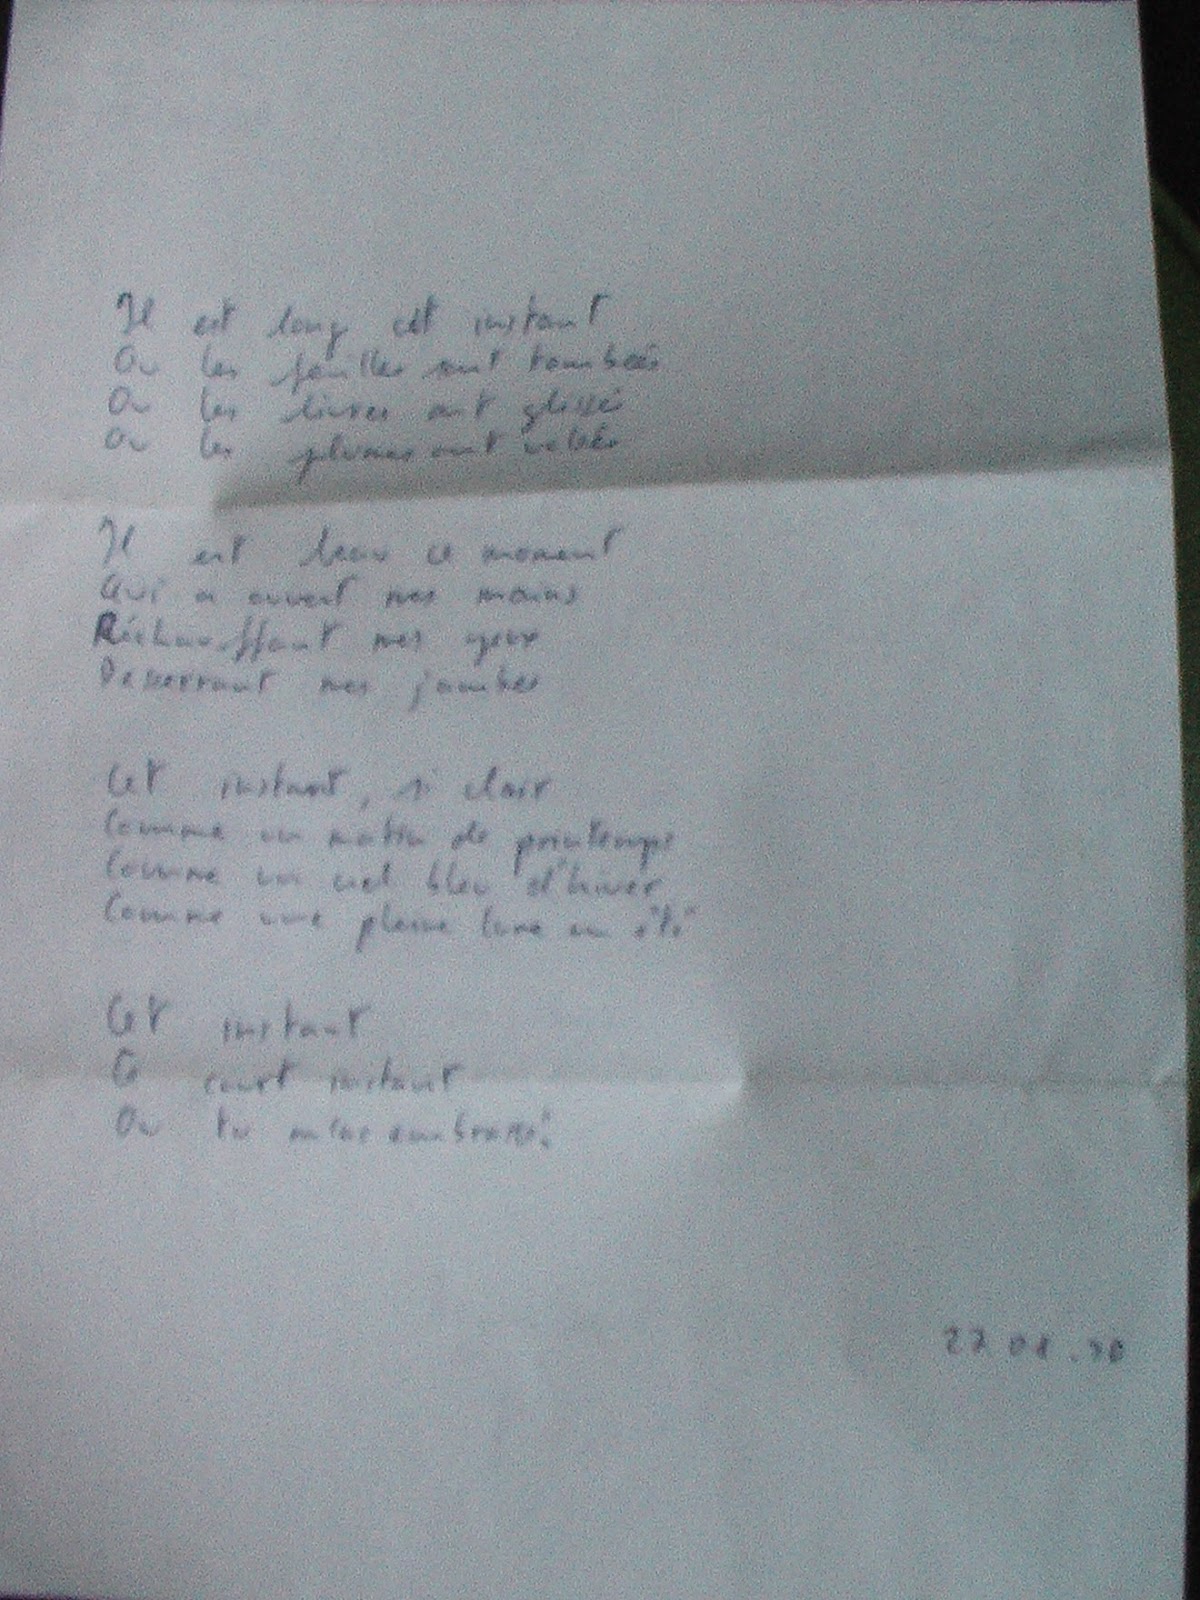 Il est long cet instant
Ou les feuilles sont tombées
Ou les livres ont glissé
Ou les plumes ont volées
Il est beau ce moment
Qui a ouvert mes mains
Réchauffant mes yeux
Desserrant mes jambes
Cet instant, si clair
Comme un matin de printemps
Comme un ciel bleu d'hiver
Comme une pleine lune en été
Cet instant
Ce court instant
Ou tu m'as embrassé
27 01